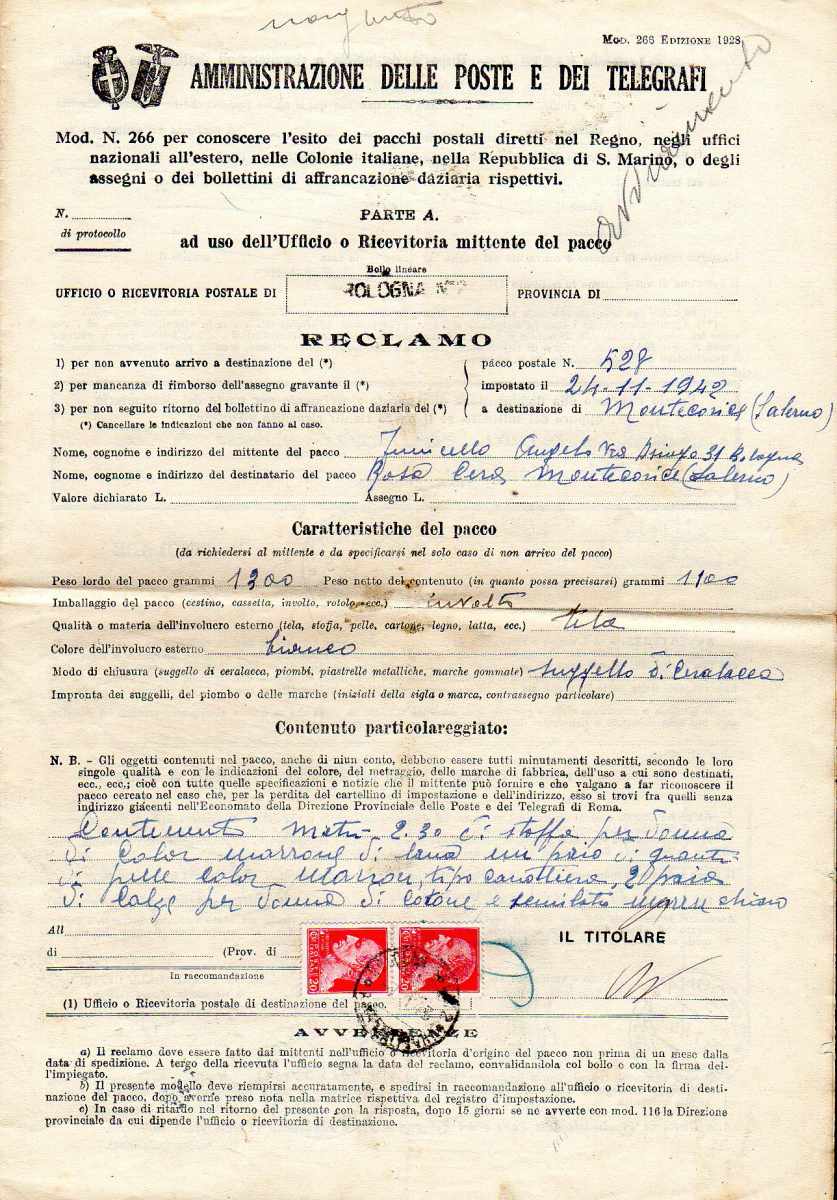 Mod. 266 Edizione 1928
AMMINISTRAZIONE DELLE POSTE E DEI TELEGRAFI
Mod. N. 266 per conoscere l'esito dei pacchi postali diretti nel Regno, negli uffici
nazionali all'estero, nelle Colonie italiane, nella Repubblica di S. Marino, o degli
assegni o dei bollettini di affrancazione daziaria rispettivi.
N.
di protocollo
PARTE A.
ad uso dell'Ufficio o Ricevitoria mittente del pacco
Bollo lineare
UFFICIO O RICEVITORIA POSTALE DI BOLOGNA PROVINCIA DI
RECLAMO
1) per non avvenuto arrivo a destinazione del (*) pacco postale N. 528
2) per mancanza di rimborso dell'assegno gravante il (*) impostato il 24-11-1942
3) per non seguito ritorno del bollettino di affrancazione daziaria del (*) a destinazione di Montecorice (Salerno)
(*) Cancellare le indicazioni che non fanno al caso.
Nome, cognome e indirizzo del mittente del pacco Angelo Via 31 Bologna
Nome, cognome e indirizzo del destinatario del pacco Rosa Cera Montecorice (Salerno)
Valore dichiarato L. Assegno L.
Caratteristiche del pacco
(da richiedersi al mittente e da specificarsi nel solo caso di non arrivo del pacco)
Peso lordo del pacco grammi 1300 Peso netto del contenuto (in quanto possa precisarsi) grammi 1100
Imballaggio del pacco (cestino, cassetta, involto, rotolo, ecc.) involto
Qualità o materia dell'involucro esterno (tela, stoffa, pelle, cartone, legno, latta, ecc.) tela
Colore dell'involucro esterno bianco
Modo di chiusura (suggello di ceralacca, piombi, piastrelle metalliche, marche gommate) suggello di Ceralacca
Impronta dei suggelli, del piombo o delle marche (iniziali della sigla o marca, contrassegno particolare)
Contenuto particolareggiato:
N. B. - Gli oggetti contenuti nel pacco, anche di niun conto, debbono essere tutti minutamenti descritti, secondo le loro
singole qualità e con le indicazioni del colore, del metraggio, delle marche di fabbrica, dell'uso a cui sono destinati,
ecc., ecc.; cioè con tutte quelle specificazioni e notizie che il mittente può fornire e che valgano a far riconoscere il
pacco cercato nel caso che, per la perdita del cartellino di impostazione e dell'indirizzo, esso si trovi fra quelli senza
indirizzo giacenti nell'Economato della Direzione Provinciale delle Poste e dei Telegrafi di Roma.
Contenente Metri 2.30 di stoffa per donna
di Color marrone di lana un paio di guanti
di pelle Color marron, tipo canottiera, 20 paia
di Calze per donna di cotone e semiseta chiaro
All
di (Prov. di
In raccomandazione
IL TITOLARE
(1) Ufficio o Ricevitoria postale di destinazione del pacco.
AVVERTENZE
a) Il reclamo deve essere fatto dai mittenti nell'ufficio o ricevitoria d'origine del pacco non prima di un mese dalla
data di spedizione. A tergo della ricevuta l'ufficio segna la data del reclamo, convalidandola col bollo e con la firma del-
l'impiegato.
b) Il presente modello deve riempirsi accuratamente, e spedirsi in raccomandazione all'ufficio o ricevitoria di desti-
nazione del pacco, dopo averne preso nota nella matrice rispettiva del registro d'impostazione.
c) In caso di ritardo nel ritorno del presente con la risposta, dopo 15 giorni se ne avverte con mod. 116 la Direzione
provinciale da cui dipende l'ufficio o ricevitoria di destinazione.